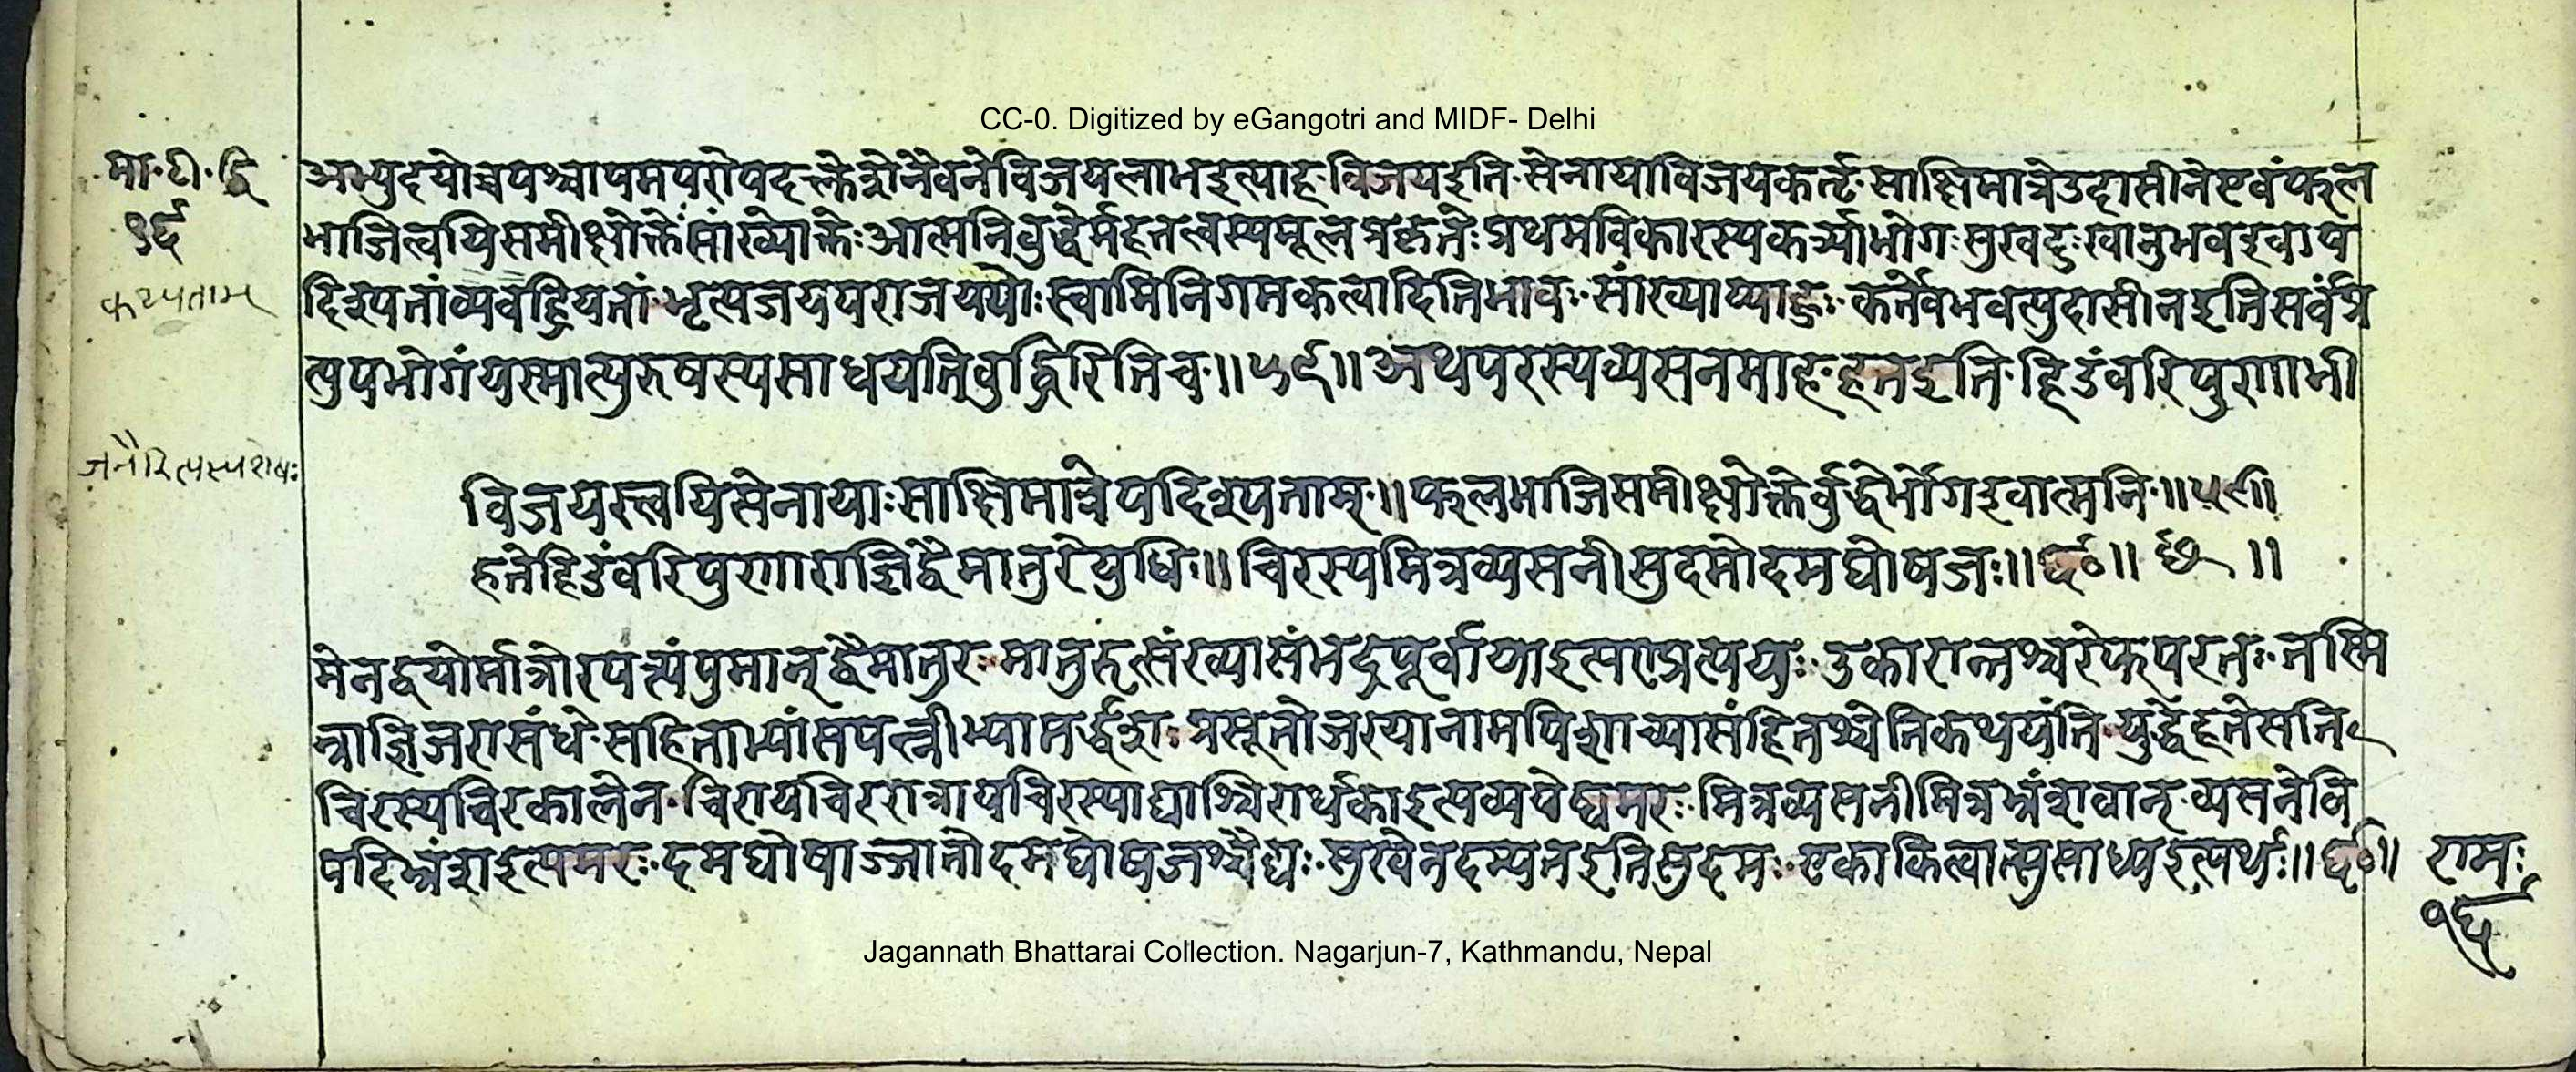 CC-0. Digitized by eGangotri and MIDF- Delhi
मा·टी·द्वि
१६
कथ्यताम्
अभ्युदयोच्चयश्चापमपरोपदत्तेत्रोनैवनेविजयलाभइत्याह·विजयइति·सेनायाविजयकर्तृ·साक्षिमात्रेउदासीनेएवंफल
भाजित्वयिसमीक्षोक्तेःसांख्योक्तेःआत्मनिबुद्धेर्महतत्वस्यमूलप्रकृतेःप्रथमविकारस्यकर्त्र्याभोगःसुखदुःखानुभवइवाप
दिश्यतांव्यवह्रियतां·भृत्यजयपराजययोःस्वामिनिगमकत्वादितिभावः·सांख्याप्याहुः·कर्तैवभवत्युदासीनइतिसर्वंप्र
त्युपभोगंयस्मात्पुरुषस्यसाधयतिबुद्धिरितिच॥५९॥अथपरस्यव्यसनमाह·हतइति·हिडंबरिपुणाभी
जनैरित्यस्यशेषः
विजयस्त्वयिसेनायाःसाक्षिमात्रेपदिश्यताम्॥फलभाजिसमीक्षोक्तेर्बुद्धेर्भोगइवात्मनि॥५९॥
हतेहिडंबरिपुणाराज्ञिद्वैमातुरेयुधि॥चिरस्यमित्रव्यसनीसुदमोदमघोषजः॥६०॥ छ ॥
मेनद्वयोर्मात्रोरपत्यंपुमान्द्वैमातुरः·मातुरुत्संख्यासंभद्रपूर्वायाइत्यण्प्रत्ययः·उकारान्तश्चरेफपरतः·तस्मि
न्राज्ञिजरासंधे·सहिताभ्यांसपत्नीभ्यामर्द्धशः·प्रसूतोजरयानामपिशाच्यासंहितश्चेतिकथयंति·युद्धेहतेसति
चिरस्यचिरकालेन·चिरायचिररात्रायचिरस्याद्याश्चिरार्थकाइत्यव्ययेष्वमरः·मित्रव्यसनीमित्रभ्रंशवान्·व्यसनेवि
पदिभ्रंशइत्यमरः·दमघोषाज्जातोदमघोषजश्चैद्यः·सुखेनदम्यतइतिसुदमः·एकाकित्वात्सुसाध्यइत्यर्थः॥६०॥
रामः
१६
Jagannath Bhattarai Collection. Nagarjun-7, Kathmandu, Nepal